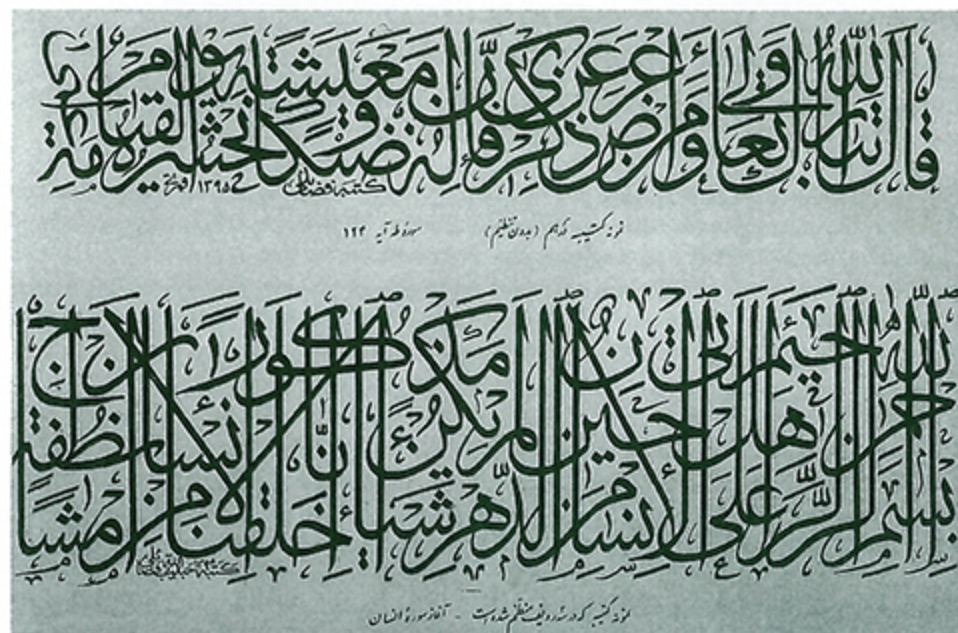 قال الله تبارك وتعالى ومن أعرض عن ذكري فإن له معيشة ضنكا ونحشره يوم القيامة أعمى
كتبه فضائلي ١٣٩٥
نمونه کتیبه درهم (بدون تنظیم) سوره طه آیه ۱۲۴
بسم الله الرحمن الرحيم هل أتى على الإنسان حين من الدهر لم يكن شيئا مذكورا إنا خلقنا الإنسان من نطفة أمشاج
نمونه کتیبه که در سه ردیف منظم شده است - آغاز سوره انسان